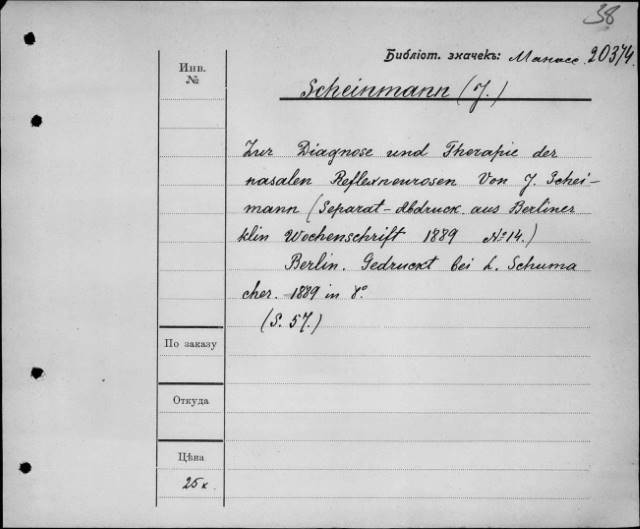 38
Библіот. значекъ: Манасс. 203/4.
Инв.
№
Scheinmann (J.)
Zur Diagnose und Therapie der
nasalen Reflexneurosen Von J. Schei-
mann (Separat-Abdruck aus Berliner
klin Wochenschrift 1889 № 14.)
Berlin. Gedruckt bei L. Schuma
cher. 1889 in 8°.
(S. 57.)
По заказу
Откуда
Цѣна
25 к.